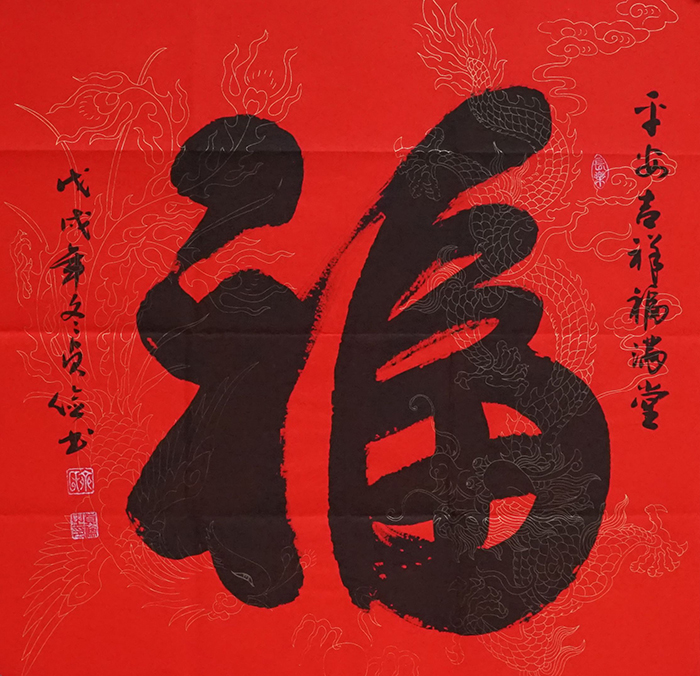 平安吉祥福满堂
福
戊戌年冬贞俭书